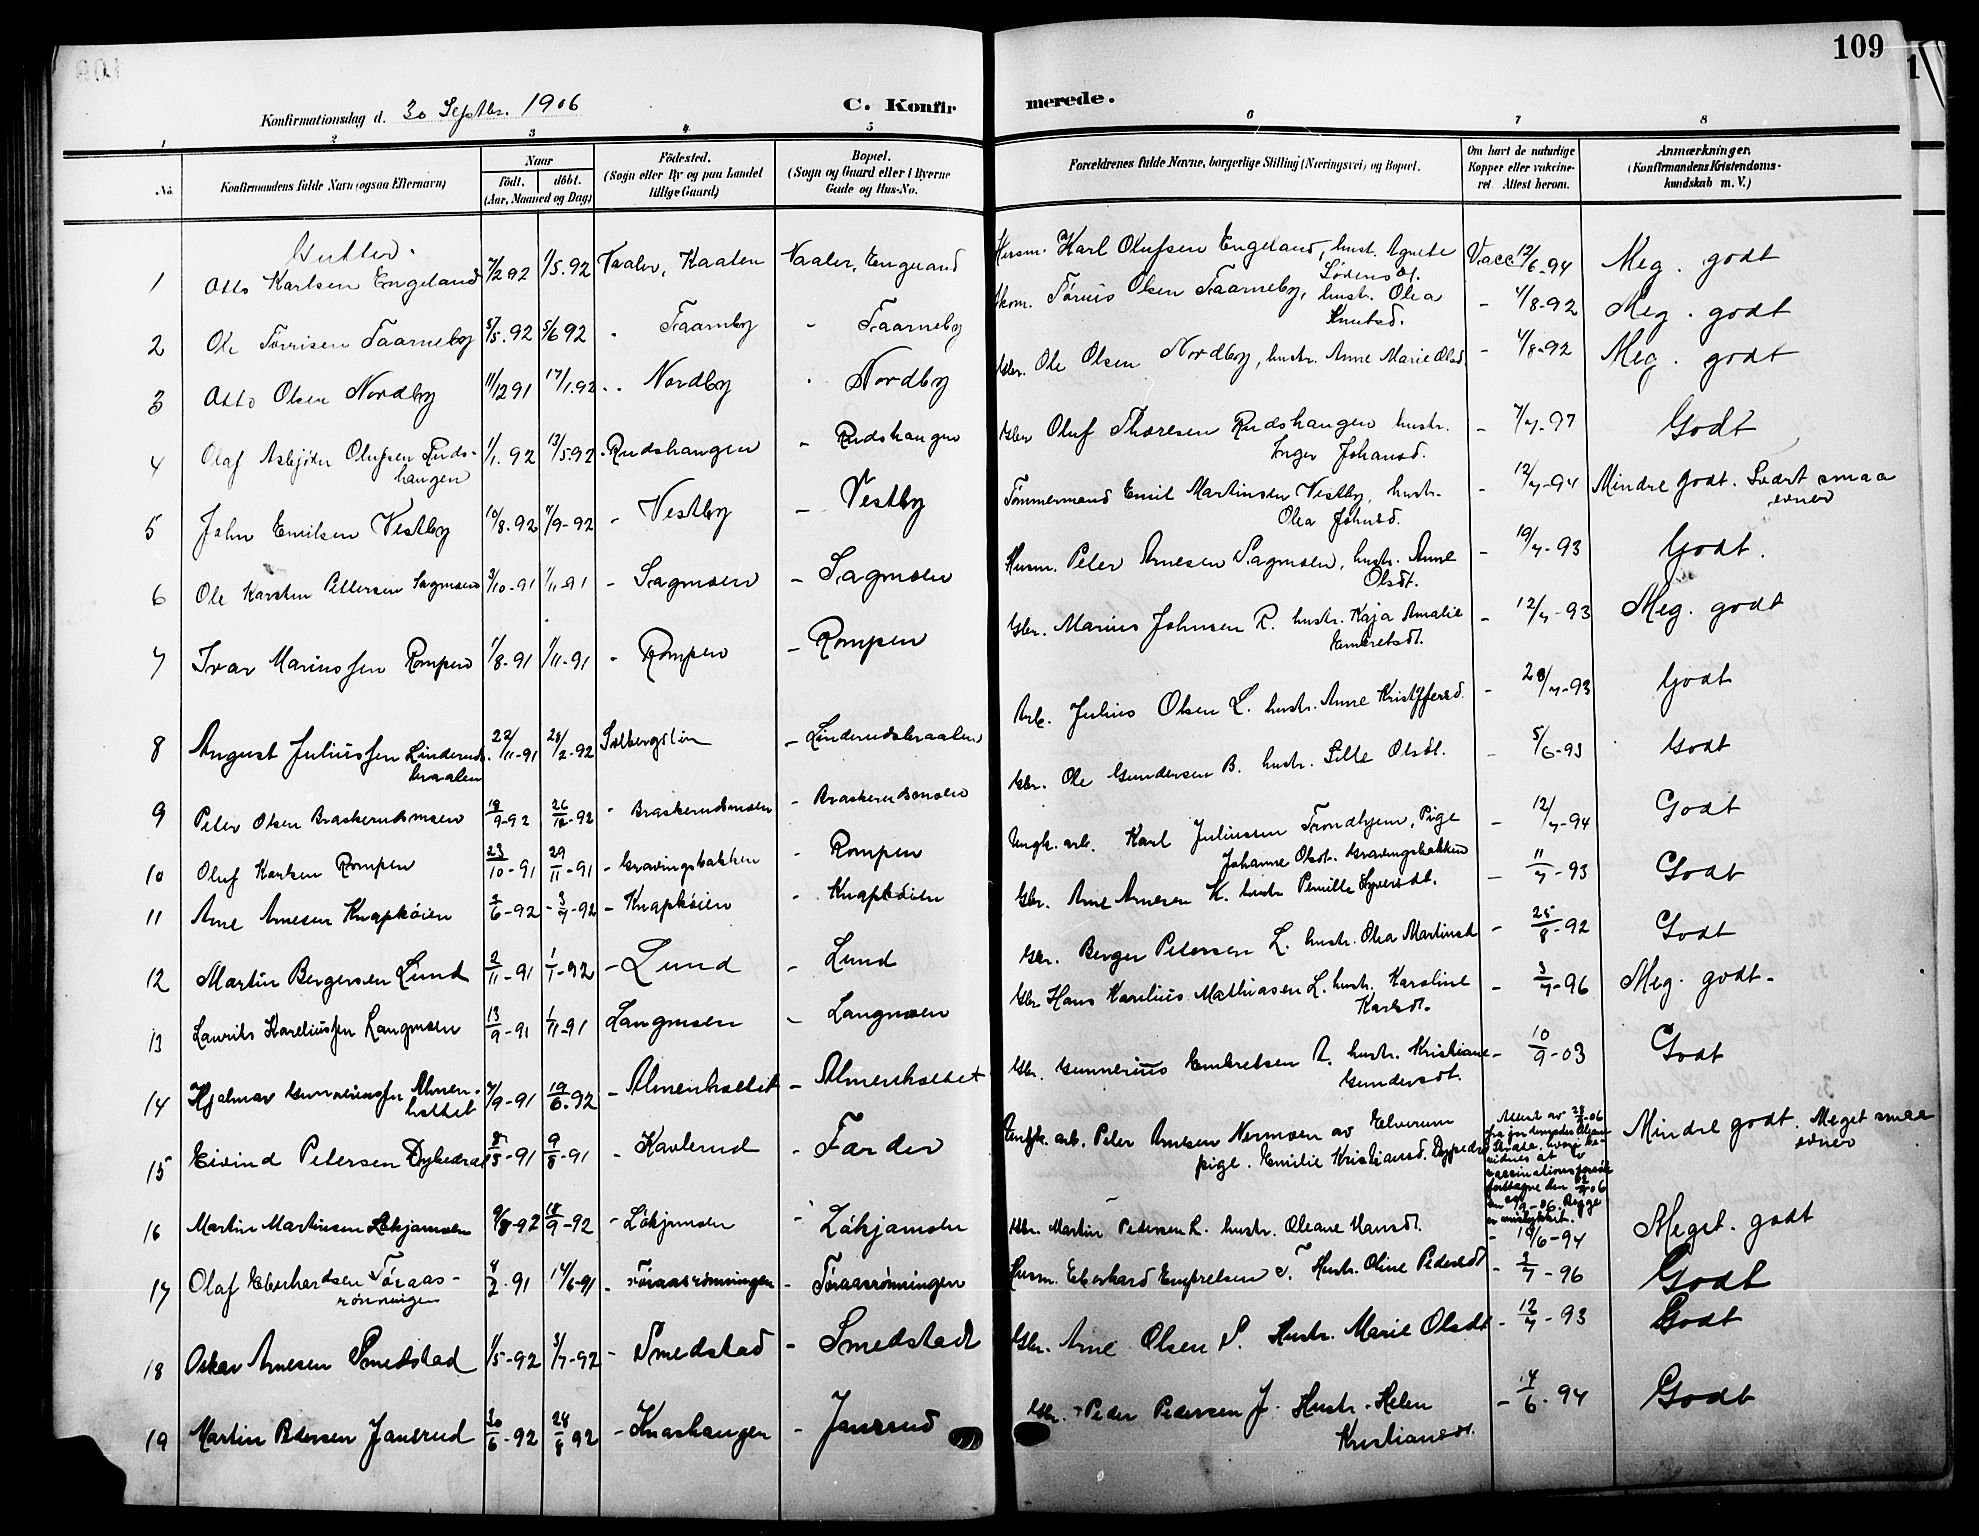 109
Konfirmationsdag d. 30 Septbr. 1906
C. Konfirmerede.
1 2 3 4 5 6 7 8
No. Konfirmandens fulde Navn (ogsaa Efternavn) Naar født. døbt. (Aar, Maaned og Dag) Fødested. (Sogn eller By og paa Landet tillige Gaard) Bopæl. (Sogn og Gaard eller i Byerne Gade og Hus-No. Forældrenes fulde Navne, borgerlige Stilling (Næringsvei) og Bopæl. Om havt de naturlige Kopper eller vakcineret. Attest herom. Anmærkninger. (Konfirmandens Kristendomskundskab m. V.)
Gutter.
1 Otto Karlsen Engeland 7/2 92 1/5.92 Vaaler, Kaaten Vaaler, Engeland Husm. Karl Olufsen Engeland, hust. Agnete Vacc 12/6-94 Meg. godt
2 Ole Tørrisen Taarneby 5/5.92 5/6 92 " Taarnby " Taarneby Olsen Taarneby, hustr. Olea Knutsd. - 4/8-92 Meg. godt
3 Otto Olsen Nordby 11/12 91 17/1.92 " Nordby " Nordby Gbr. Ole Olsen Nordby, hustr. Anne Marie Olsd - 4/8-92 Meg. godt
4 Olaf Asbjørn Olufsen Rudshaugen 1/1.92 13/5 92 - Rudshaugen - Rudshaugen Gbr Oluf Thoresen Rudshaugen hustr. Inger Johansd. - 7/7-97 Godt
5 John Emilsen Vestby 10/8.92 11/9-92 - Vestby - Vestby Tømmermand Emil Martinsen Vestby, hustr. Olea Johnsd. - 12/7-94 Mindre godt. Svært smaa evner
6 Ole Karsten Pettersen Sagmoen 3/10-91 1/11-91 - Sagmoen - Sagmoen Husm. Peter Arnesen Sagmoen, hustr. Anne Olsdt. - 19/7-93 Godt.
7 Ivar Mariussen Rompen 1/8-91 1/11-91 - Rompen - Rompen Gbr. Marius Johnsen R. hustr. Kaja Amalie Embretsdt. - 12/7-93 Meg. godt
8 August Juliussen Linderudsbraaten 22/11-91 28/2-92 Solbergslien - Linderudsbraaten Arb. Julius Olsen L. hustr. Anne Kristoffersd. - 28/7-93 Godt
9 Peter Olsen Braskerudsmoen 18/9-92 26/12-92 - Braskerudsmoen - Braskerudsmoen Gbr. Ole Gundersen B. hustr. Lille Olsdt. - 5/6-93 Godt
10 Oluf Karlsen Rompen 23/10-91 29/11-91 - Gravingsbakken - Rompen Ungk. arb. Karl Juliussen Trondhjem, Pige Johanne Olsdt. Gravingsbakken - 12/7-94 Godt
11 Arne Arnesen Knapkøien 2/6-92 - 3/7-92 - Knapkøien - Knapkøien Gbr. Arne Arnesen K. hustr Pernille Syversdt. - 11/7-93 Godt
12 Martin Bergersen Lund 2/11-91 1/1-92 - Lund - Lund Gbr. Berger Petersen L. hustr. Olea Martinsd - 25/8-92 Godt
13 Laurits Kareliussen Langmoen 13/9-91 1/11-91 Langmoen - Langmoen Gbr Hans Karelius Mathiasen L. hustr. Karoline Karlsdt. - 3/7-96 Meg. godt.
14 Hjalmar Gunneriussen Almenholtet 7/9-91 19/6-92 - Almenholtet - Almenholtet Gbr. Gunnerius Embretsen A. hustr. Kristiane Gundersdt. - 10/9-03 Godt
15 Eivind Petersen Dybedral 8/5-91 9/8-91 - Kavlerud - Farder Ungk. arb. Peter Arnesen Nermoen av Elverum pige. Emilie Kristiansd. Attest av Mindre godt. Meget smaa evner
16 Martin Martinsen Løkjamoen 9/8-92 18/9-92 - Løkjamoen - Løkjamoen Gbr. Martin Pedersen L. hustr. Oleane Hansdt. - 18/6-94 Meget. godt
17 Olaf Eberhardsen Tøraasrønningen 4/2-91 14/6-91 - Tøraasrønningen - Tøraasrønningen Husm. Eberhard Embretsen T. Hustr. Oline Pedersdt - 2/7-96 Godt
18 Oskar Arnesen Smedstad 1/5-92 3/7-92 - Smedstad - Smedstad Gbr. Arne Olsen S. Hustr. Marie Olsdt - 12/7-93 Godt
19 Martin Pedersen Janerud 30/6-92 28/8 92 - Knashaugen - Janerud Gbr. Peder Pedersen J. Hustr. Helen Kristiansdt. - 14/6-94 Godt